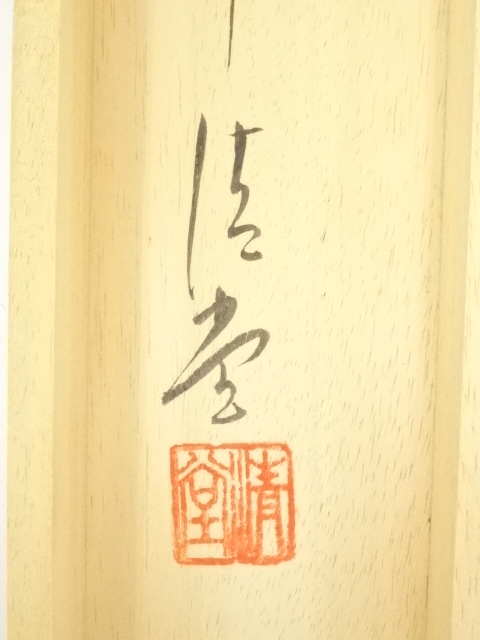 清堂
清堂